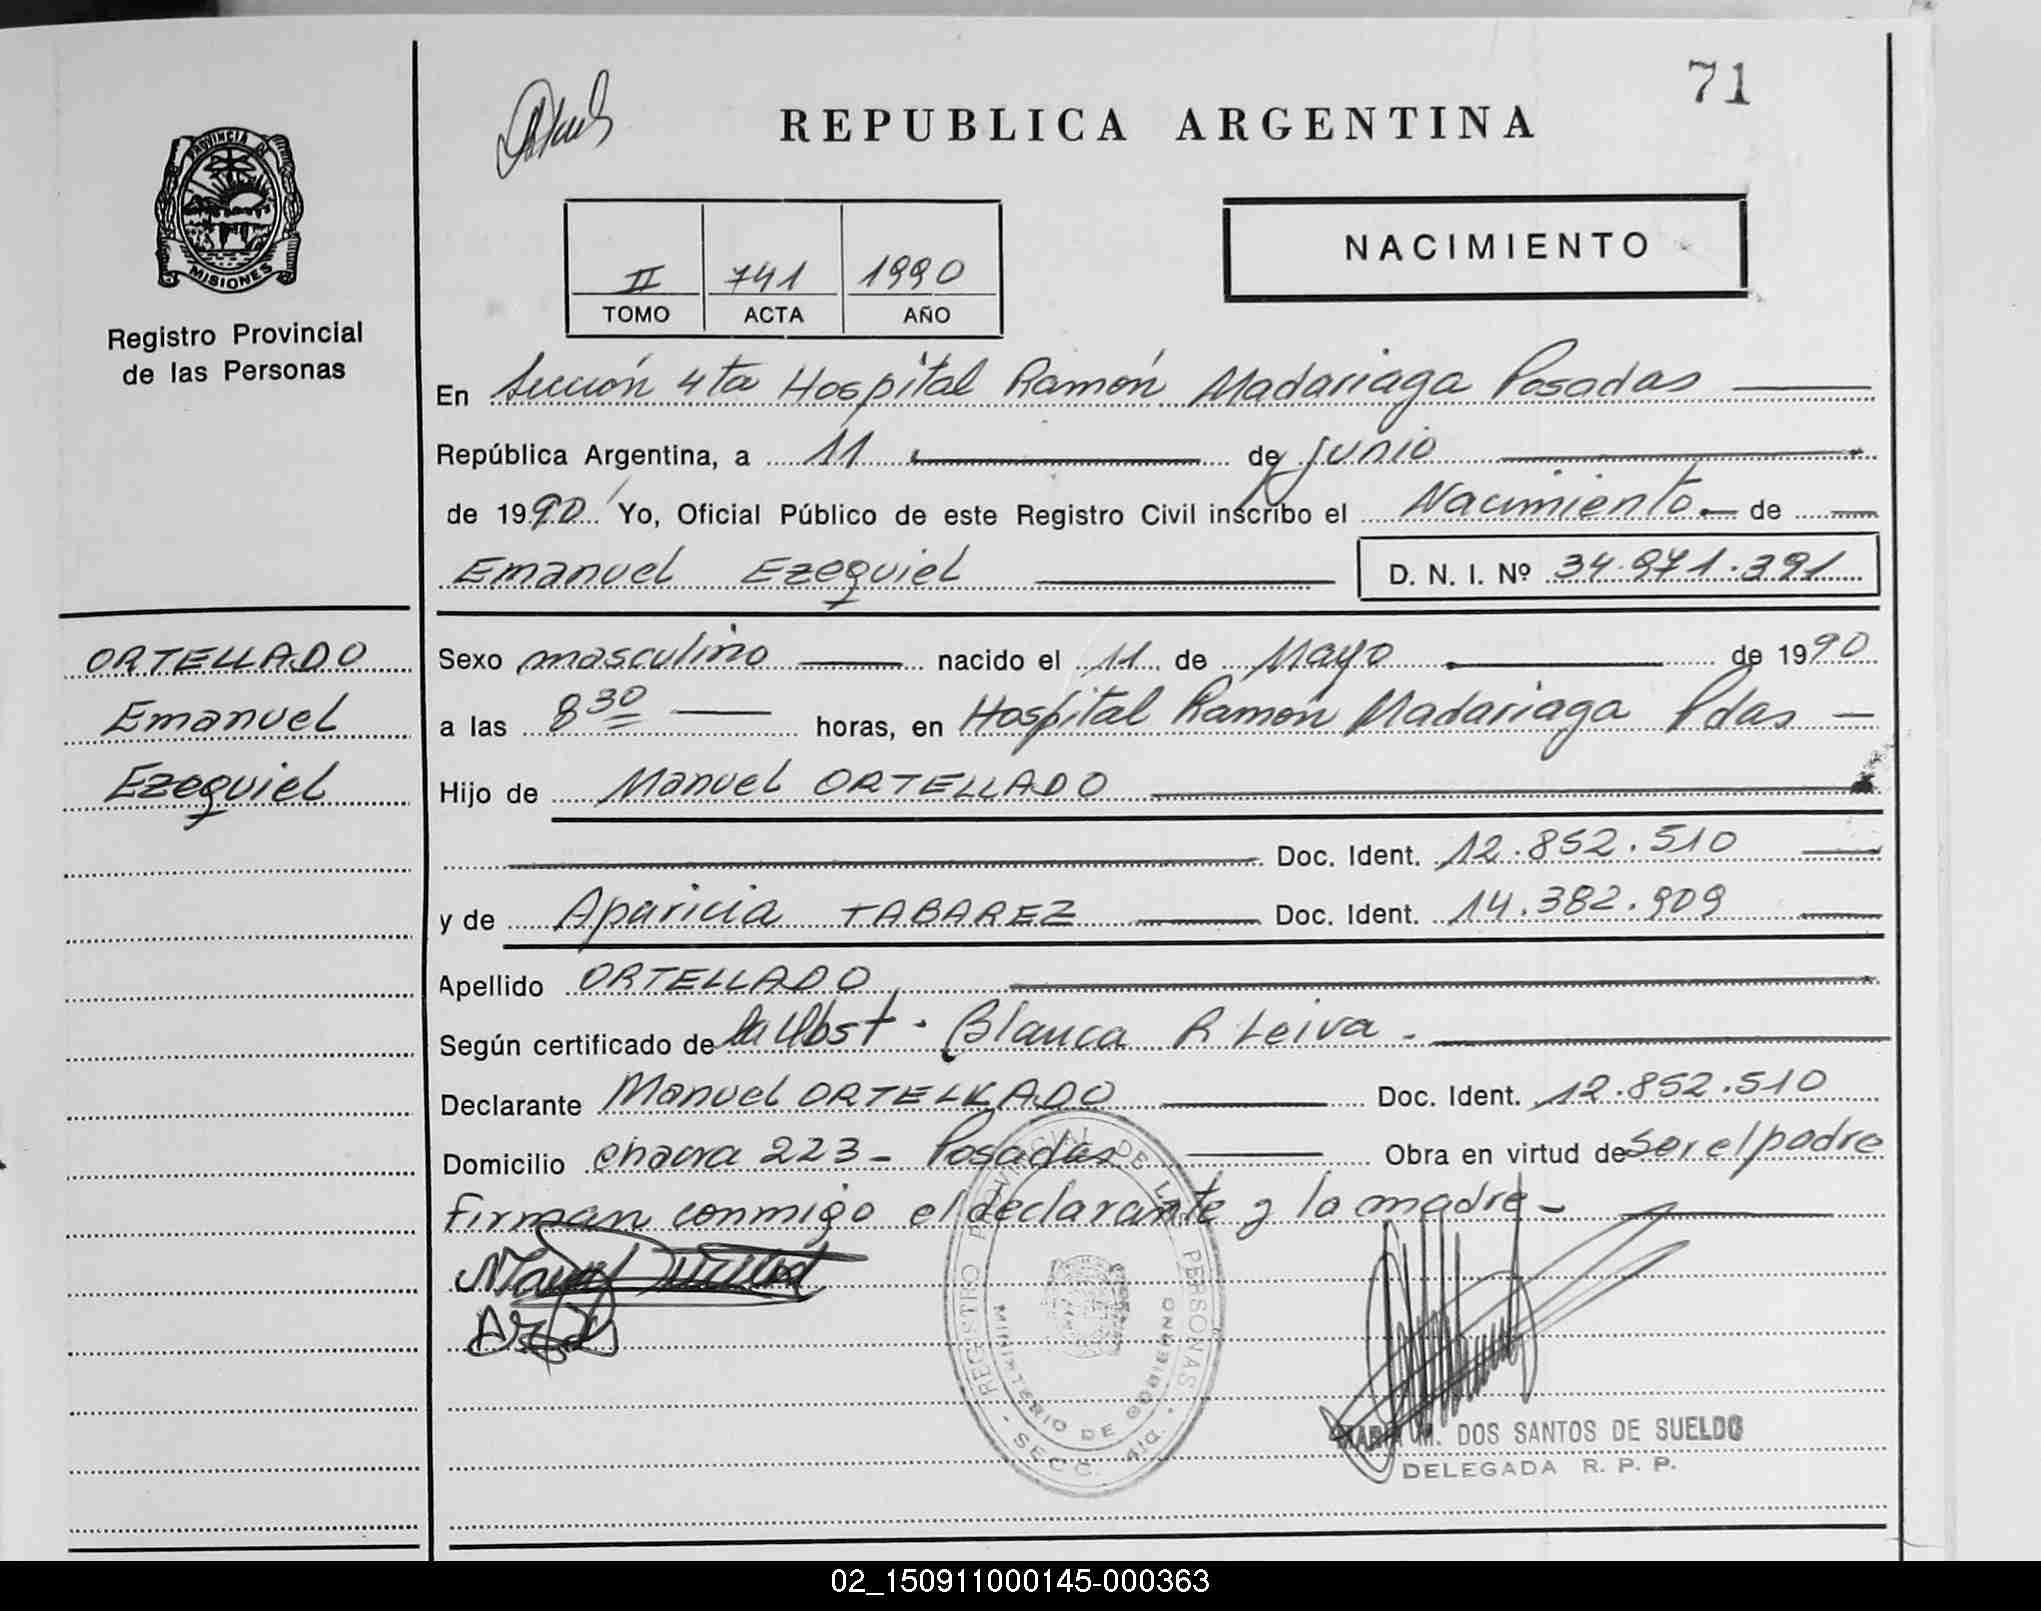 71
REPUBLICA ARGENTINA
PROVINCIA DE
MISIONES
Registro Provincial
de las Personas
NACIMIENTO
II 741 1990
TOMO ACTA AÑO
En Sección 4ta Hospital Ramón Madariaga Posadas
República Argentina, a 11 de junio
de 1990 Yo, Oficial Público de este Registro Civil inscribo el Nacimiento de
Emanuel Ezequiel D. N. I. Nº 34.971.391
ORTELLADO
Emanuel
Ezequiel
Sexo masculino nacido el 11 de Mayo de 1990
a las 8 30 horas, en Hospital Ramón Madariaga Pdas
Hijo de Manuel ORTELLADO
Doc. Ident. 12.852.510
y de Aparicia TABAREZ Doc. Ident. 14.382.909
Apellido ORTELLADO
Según certificado de la Obst. Blanca R Leiva.
Declarante Manuel ORTELLADO Doc. Ident. 12.852.510
Domicilio chacra 223 - Posadas Obra en virtud de ser el padre
Firman conmigo el declarante y la madre -
REGISTRO PROVINCIAL DE LAS PERSONAS
MINISTERIO DE GOBIERNO
SECC. 4ta.
MARIA M. DOS SANTOS DE SUELDO
DELEGADA R. P. P.
02_150911000145-000363